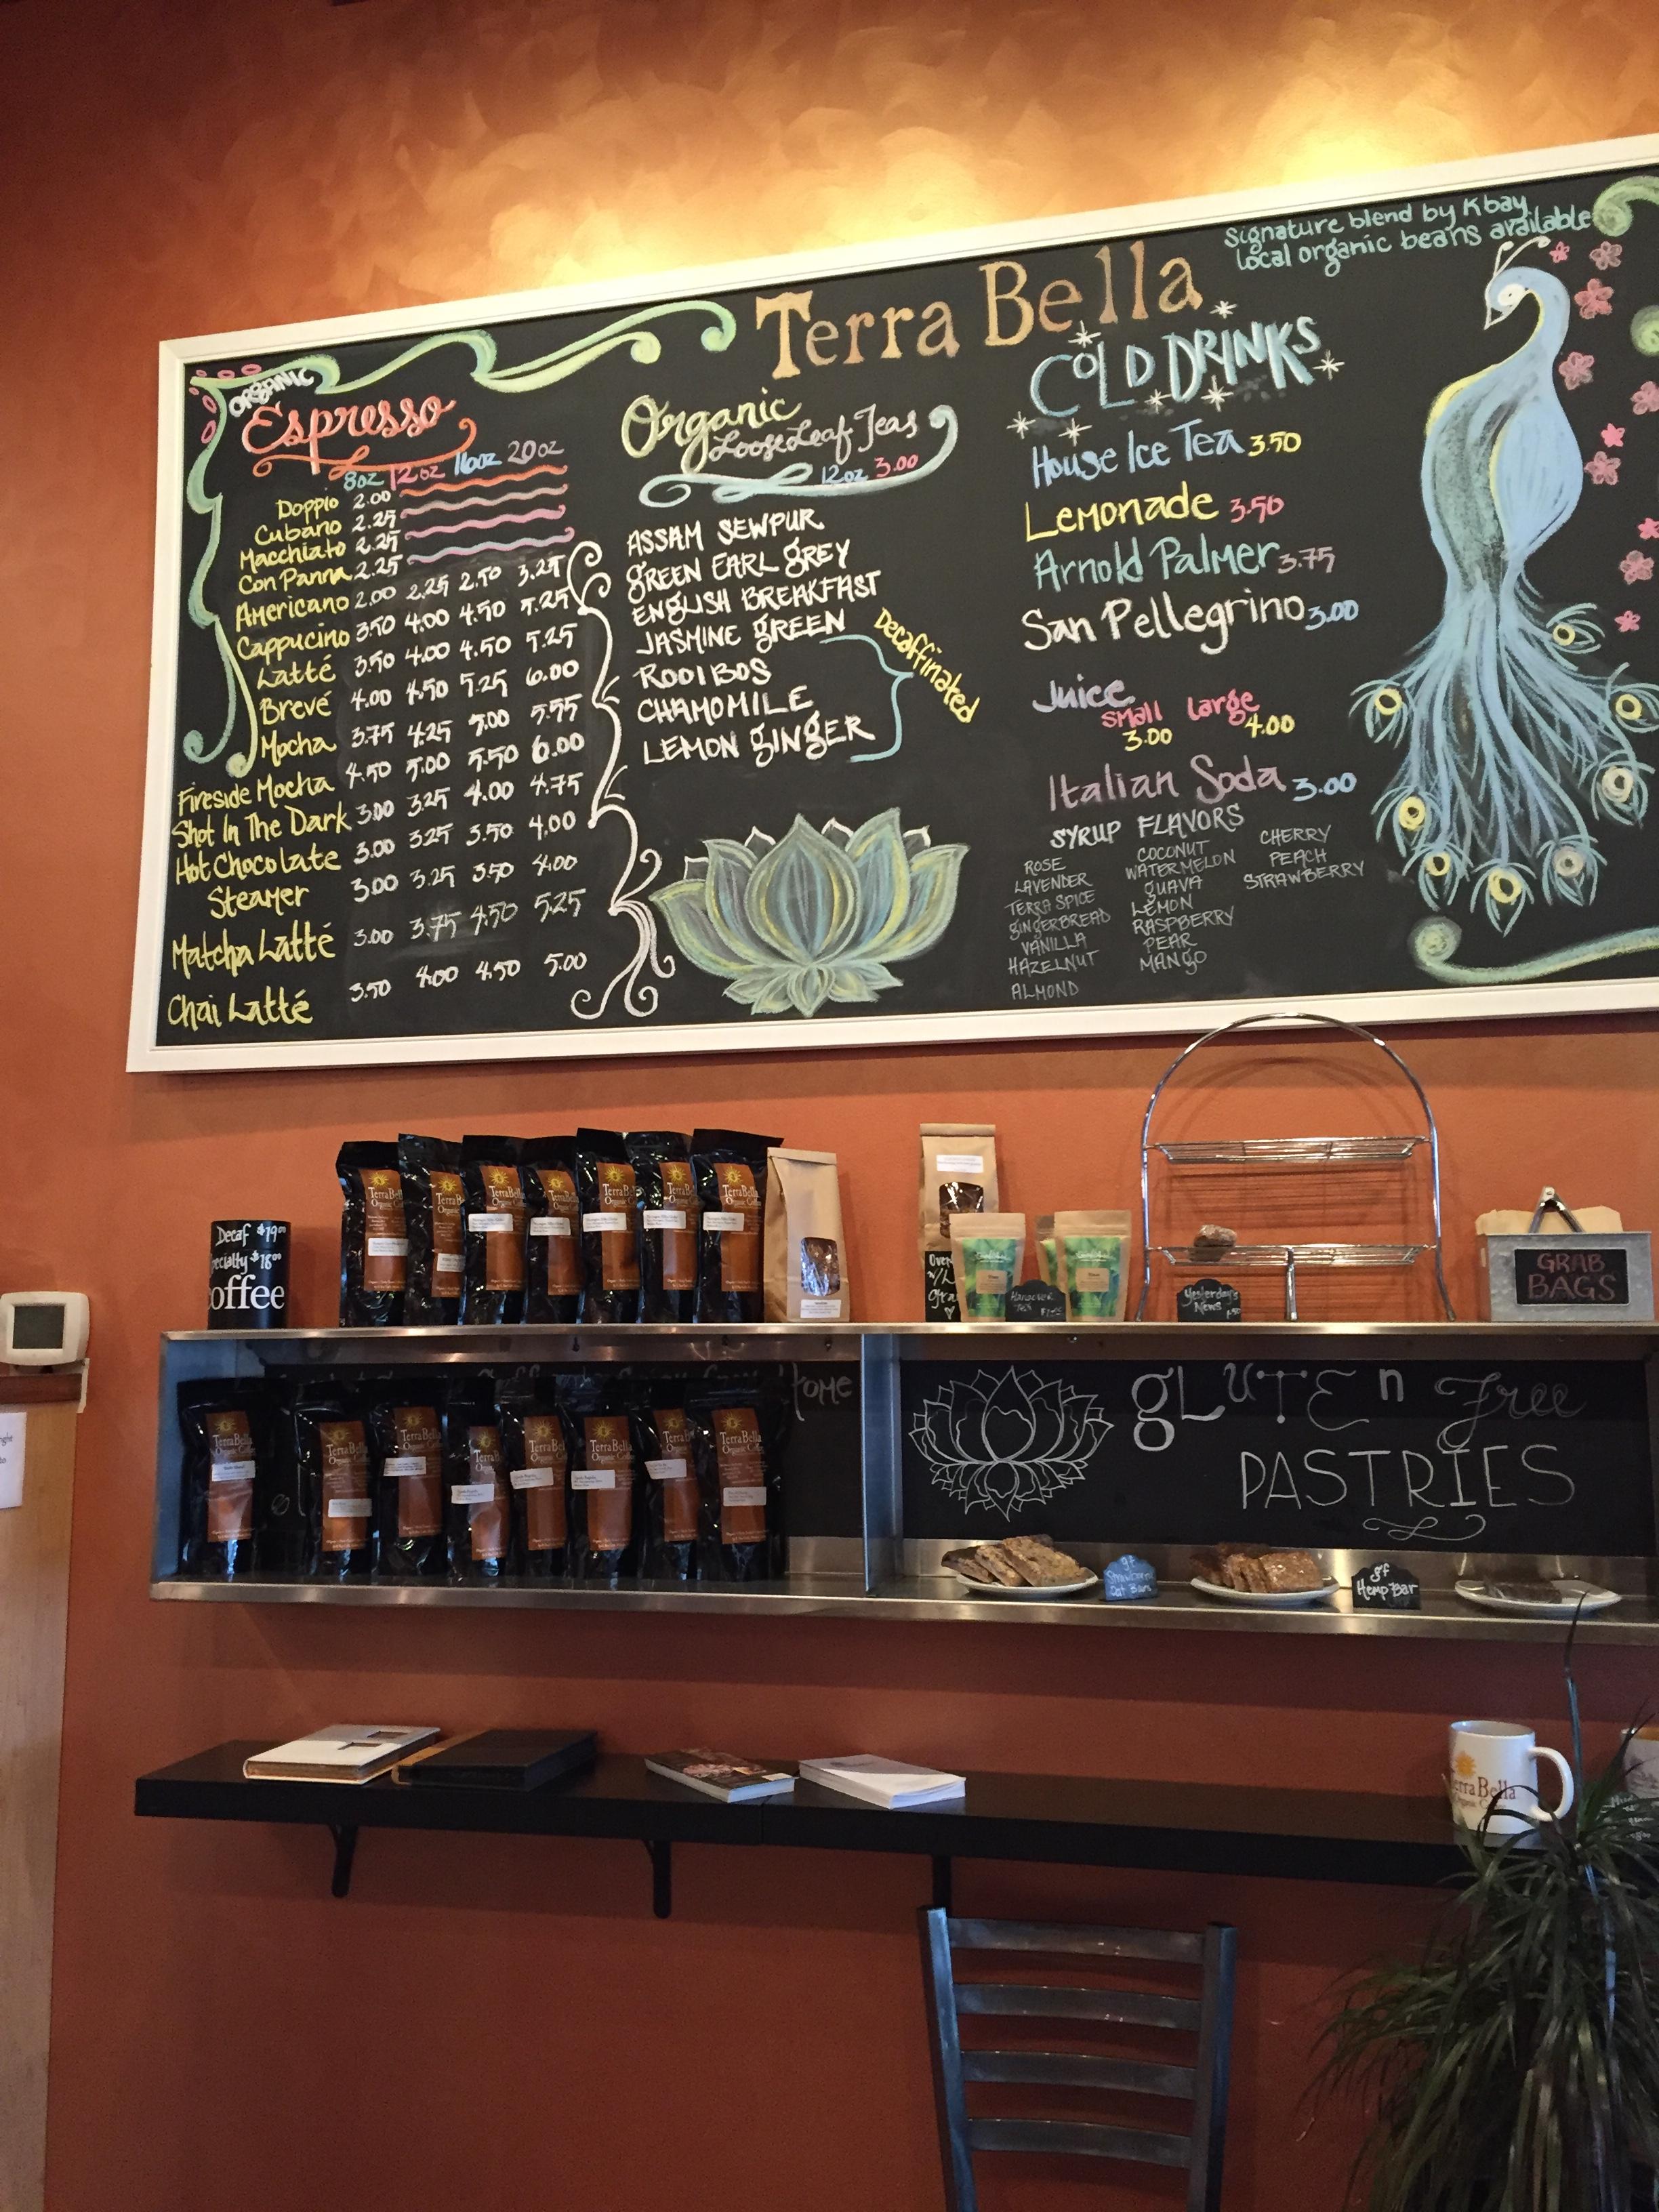 Signature blend by Kbay
local organic beans available
Terra Bella
ORGANIC
Espresso
8oz 12oz 16oz 20oz
Doppio 2.00
Cubano 2.25
Macchiato 2.25
Con Panna 2.25
Americano 2.00 2.25 2.50 3.25
Cappucino 3.50 4.00 4.50 5.25
Latté 3.50 4.00 4.50 5.25
Brevé 4.00 4.50 5.25 6.00
Mocha 3.75 4.25 5.00 5.55
Fireside Mocha 4.50 5.00 5.50 6.00
Shot In The Dark 3.00 3.25 4.00 4.75
Hot Chocolate 3.00 3.25 3.50 4.00
Steamer 3.00 3.25 3.50 4.00
Matcha Latté 3.00 3.75 4.50 5.25
Chai Latté 3.50 4.00 4.50 5.00
Organic
Loose Leaf Teas
12oz 3.00
ASSAM SEWPUR
GREEN EARL GREY
ENGLISH BREAKFAST
JASMINE GREEN
ROOIBOS
CHAMOMILE
LEMON GINGER
Decaffinated
COLD DRINKS
House Ice Tea 3.50
Lemonade 3.50
Arnold Palmer 3.75
San Pellegrino 3.00
Juice
small large
3.00 4.00
Italian Soda 3.00
SYRUP FLAVORS
ROSE
LAVENDER
TERRA SPICE
GINGERBREAD
VANILLA
HAZELNUT
ALMOND
COCONUT
WATERMELON
GUAVA
LEMON
RASPBERRY
PEAR
MANGO
CHERRY
PEACH
STRAWBERRY
Decaf $19.00
specialty $18.00
coffee
TerraBella
Organic Coffee
Hangover
Tea
Yesterday's
News
GRAB
BAGS
Home
gLUTEn Free
PASTRIES
TerraBella
Organic Coffee
gf
Strawberry
Oat Bars
gf
Hemp Bar
Terra Bella
Organic Coffee